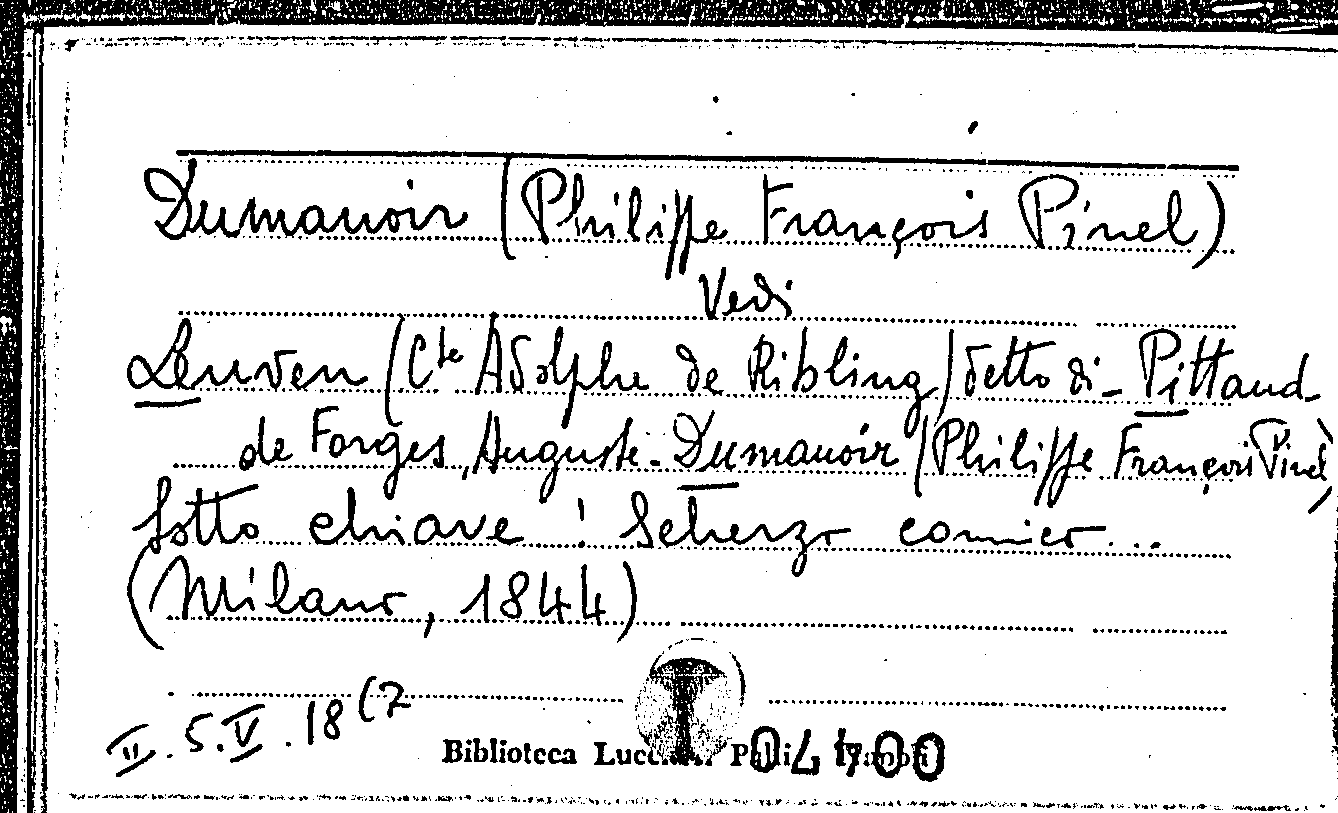 Dumanoir (Philippe François Pinel)
Vedi
Leuven (Cte Adolphe de Ribbing) detto di - Pittaud
de Forges, Auguste - Dumanoir (Philippe François Pinel)
Sotto chiave! Scherzo comico...
(Milano, 1844)
II. 5. V. 18 (7
Biblioteca